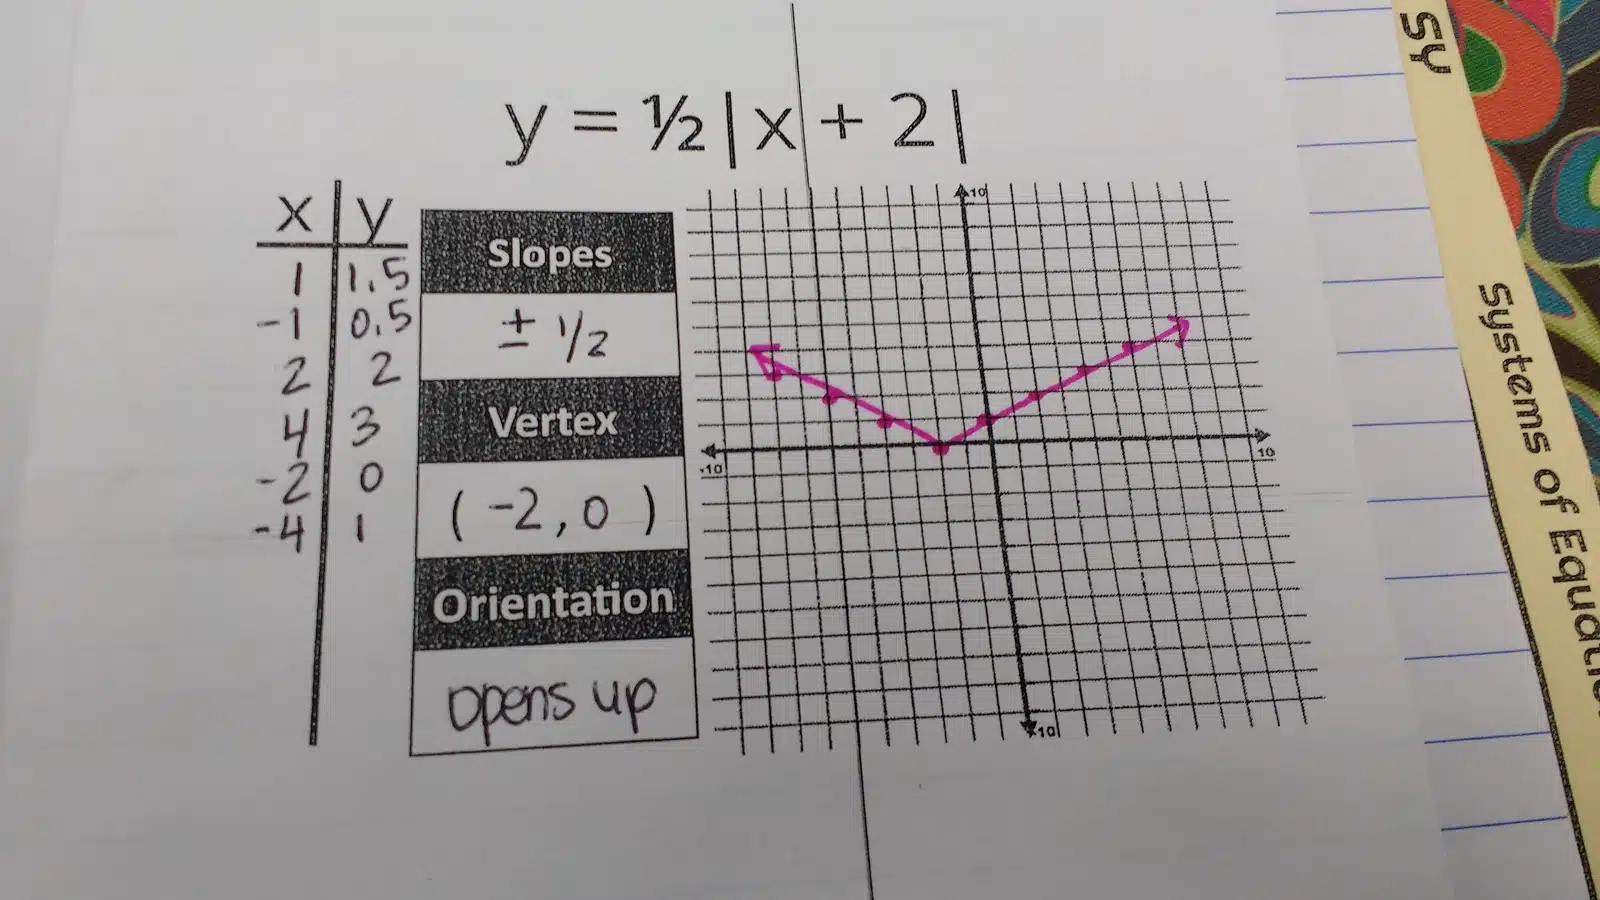 y = ½|x + 2|
x y
1 1.5
-1 0.5
2 2
4 3
-2 0
-4 1
Slopes
± 1/2
Vertex
( -2, 0 )
Orientation
opens up
10
-10
10
10
Sy
Systems of